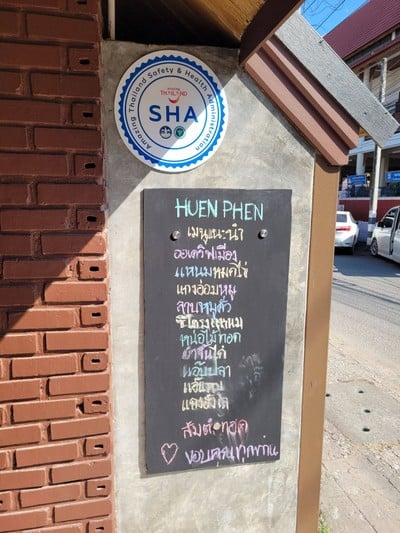 AMAZING THAILAND
Amazing Thailand Safety & Health Administration
SHA
HUEN PHEN
เมนูแนะนำ
ออเดิร์ฟเมือง
แหนมหมกไข่
แกงอ่อมหมู
ลาบหมูคั่ว
ซี่โครงหมูแหนม
หน่อไม้ทอด
แอ๊บปลา
ส้มตำทอด
ขอบคุณทุกท่าน